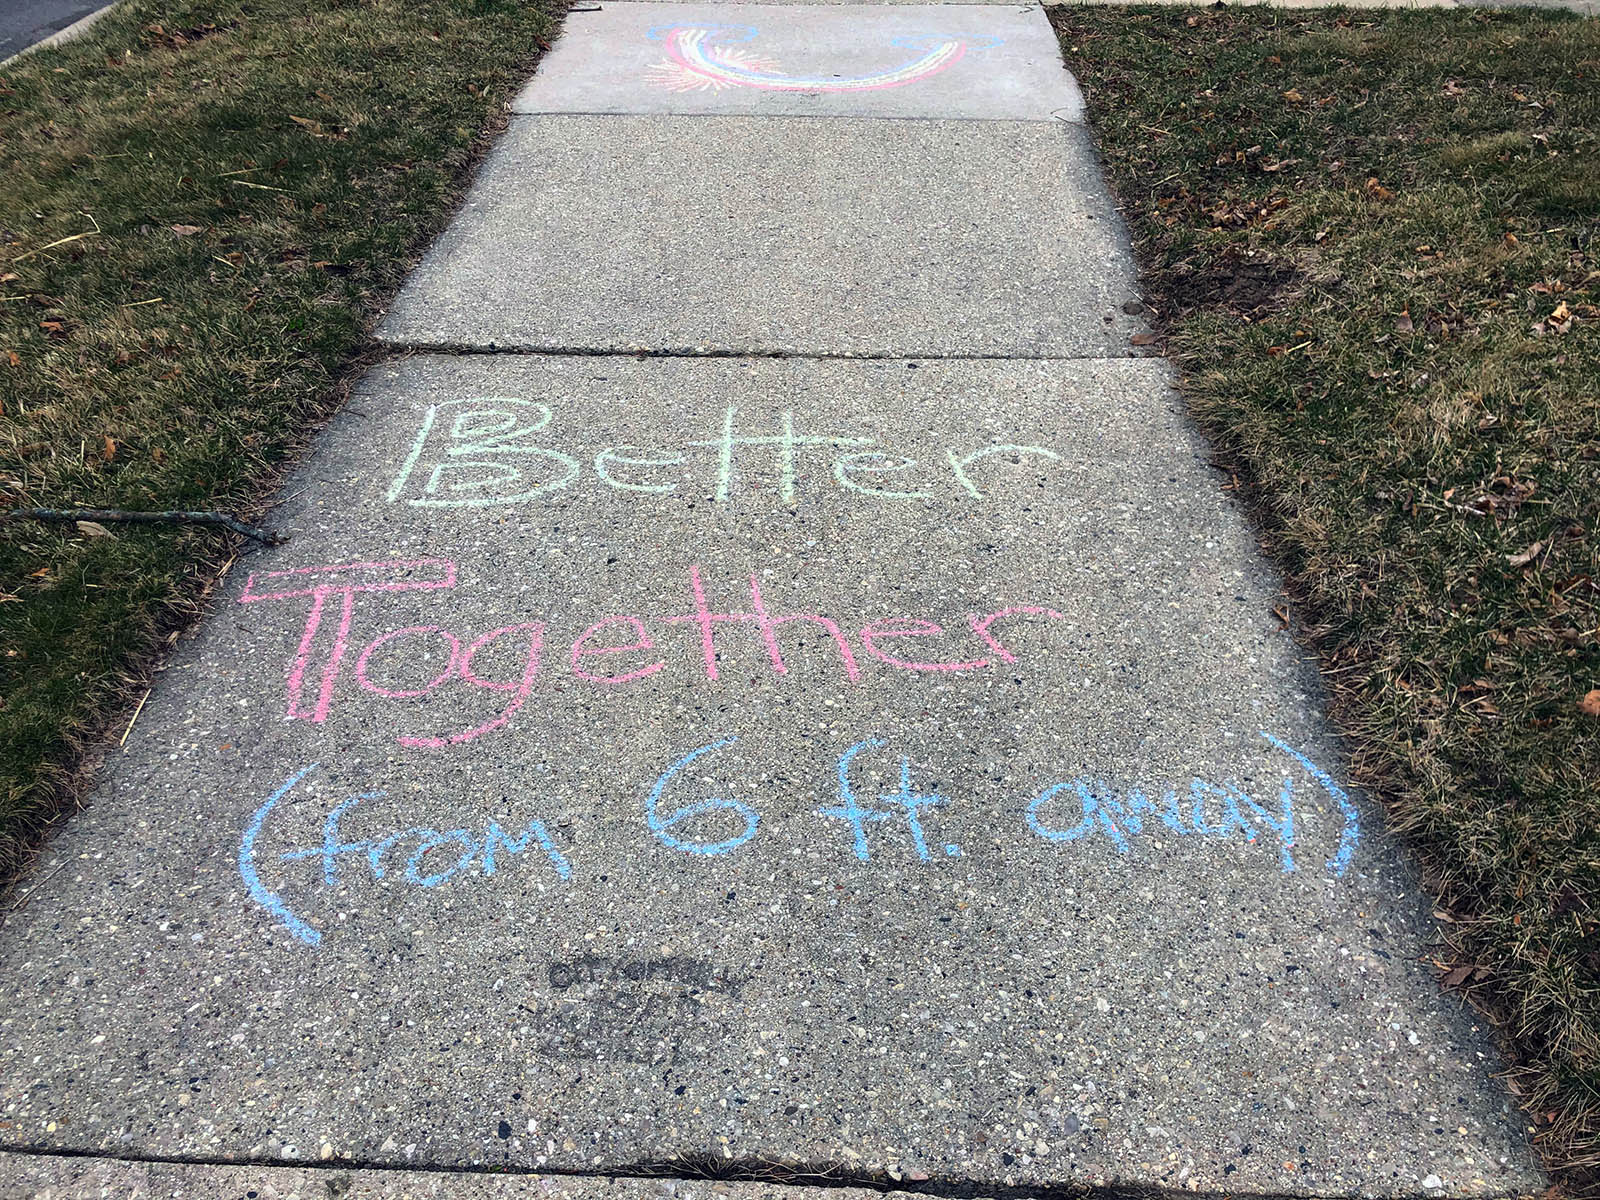 Better
Together
(from 6 ft. away)